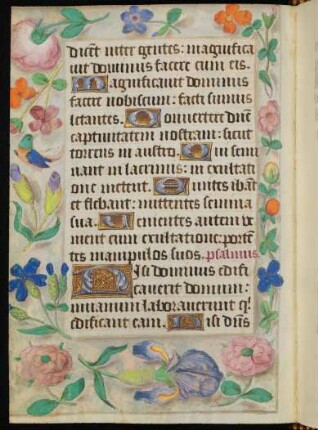 dicẽt inter gentes: magnifica
uit dominus facere cum eis.
Magnificauit dominus
facere nobiscum: facti sumus
letantes. Conuertere dñe
captiuitatem nostram: sicut
torrens in austro. Qui semi
nant in lacrimis: in exultati
one metent. Euntes ibãt
et flebant: mittentes semina
sua. Venientes autem ve
nient cum exultatione: portẽ
tes manipulos suos. psalmus
Nisi dominus edifi
cauerit domum:
in uanum laborauerunt q̃
edificant eam. Nisi dñs